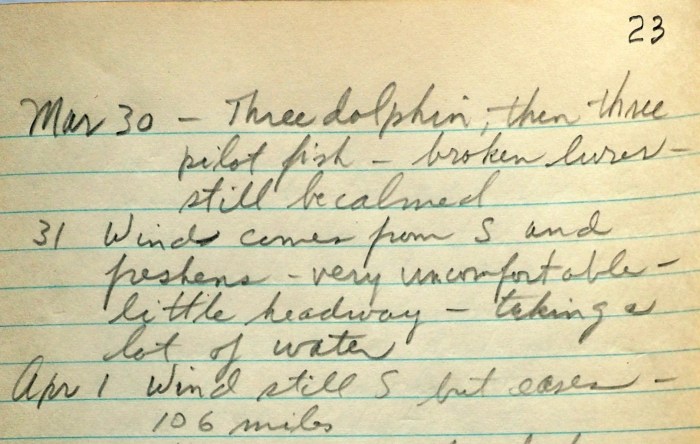 23
Mar 30 - Three dolphin, then three
pilot fish - broken lures -
still becalmed
31 Wind comes from S and
freshens - very uncomfortable -
little headway - taking a
lot of water
Apr 1 Wind still S but eases -
106 miles